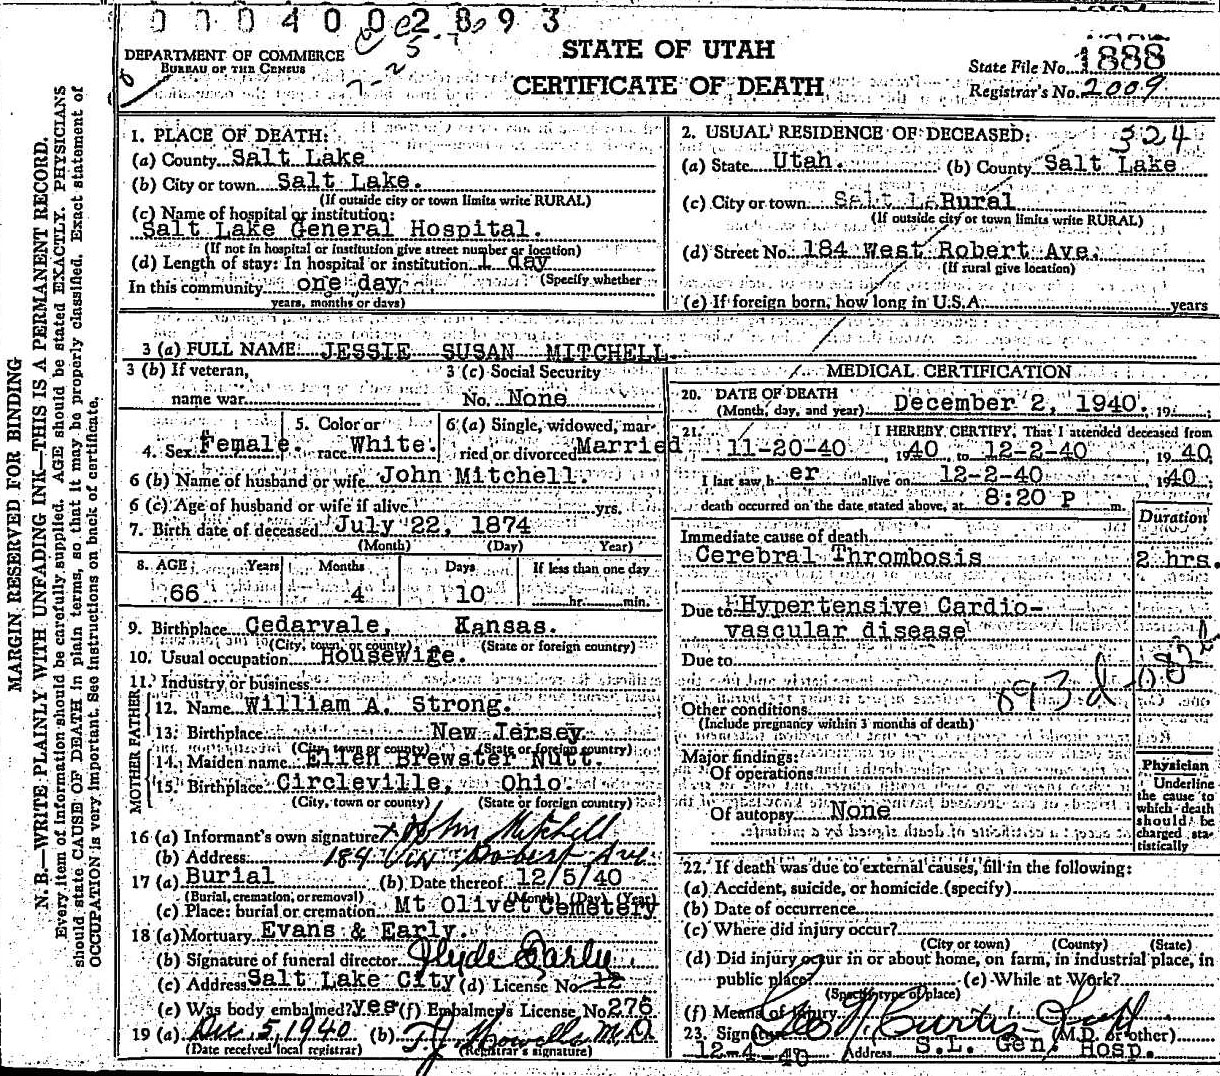 0004002893
DEPARTMENT OF COMMERCE
BUREAU OF THE CENSUS
STATE OF UTAH
CERTIFICATE OF DEATH
State File No. 1888
Registrar's No. 2009
MARGIN RESERVED FOR BINDING
N. B.—WRITE PLAINLY WITH UNFADING INK—THIS IS A PERMANENT RECORD.
Every item of information should be carefully supplied. AGE should be stated EXACTLY. PHYSICIANS
should state CAUSE OF DEATH in plain terms, so that it may be properly classified. Exact statement of
OCCUPATION is very important. See instructions on back of certificate.
1. PLACE OF DEATH:
(a) County Salt Lake
(b) City or town Salt Lake.
(If outside city or town limits write RURAL)
(c) Name of hospital or institution:
Salt Lake General Hospital.
(If not in hospital or institution give street number or location)
(d) Length of stay: In hospital or institution 1 day
(Specify whether
In this community one day
years, months or days)
2. USUAL RESIDENCE OF DECEASED: 324
(a) State Utah. (b) County Salt Lake
(c) City or town Salt La Rural
(If outside city or town limits write RURAL)
(d) Street No. 184 West Robert Ave.
(If rural give location)
(e) If foreign born, how long in U.S.A. years
3 (a) FULL NAME: JESSIE SUSAN MITCHELL.
3 (b) If veteran,
name war
3 (c) Social Security
No. None
4. Sex Female. 5. Color or race White. 6 (a) Single, widowed, married or divorced Married
6 (b) Name of husband or wife John Mitchell.
6 (c) Age of husband or wife if alive yrs.
7. Birth date of deceased July 22, 1874
(Month) (Day) Year)
8. AGE: Years Months Days If less than one day
66 4 10 hr. min.
9. Birthplace Cedarvale, Kansas.
(City, town, or county) (State or foreign country)
10. Usual occupation Housewife.
11. Industry or business
FATHER
12. Name William A. Strong.
13. Birthplace New Jersey
(City, town or county) (State or foreign country)
MOTHER
14. Maiden name Ellen Brewster Nutt.
15. Birthplace Circleville, Ohio.
(City, town or county) (State or foreign country)
16 (a) Informant's own signature x John Mitchell
(b) Address 184 W. Robert Ave.
17 (a) Burial (b) Date thereof 12/5/40
(Burial, cremation, or removal) (Month) (Day) (Year)
(c) Place: burial or cremation Mt Olivet Cemetery
18 (a) Mortuary Evans & Early.
(b) Signature of funeral director Clyde Early
(c) Address Salt Lake City (d) License No. 12
(e) Was body embalmed? yes (f) Embalmer's License No. 276
19 (a) Dec. 5, 1940 (b) T. J. Howells M.D.
(Date received local registrar) (Registrar's signature)
MEDICAL CERTIFICATION
20. DATE OF DEATH
(Month, day, and year) December 2, 1940. 19
21. I HEREBY CERTIFY, That I attended deceased from
11-20-40 1940 to 12-2-40 1940
I last saw h er alive on 12-2-40 1940
death occurred on the date stated above, at 8:20 P m.
Duration
Immediate cause of death
Cerebral Thrombosis 2 hrs.
Due to Hypertensive Cardio-
vascular disease
Due to
093d
Other conditions
(Include pregnancy within 3 months of death)
Major findings:
Of operations
Of autopsy None
Physician
Underline
the cause to
which death
should be
charged sta-
tistically
22. If death was due to external causes, fill in the following:
(a) Accident, suicide, or homicide (specify)
(b) Date of occurrence
(c) Where did injury occur?
(City or town) (County) (State)
(d) Did injury occur in or about home, on farm, in industrial place, in
public place? (e) While at Work?
(Specify type of place)
(f) Means of injury
23. Signature Curtis (M.D. or other)
12-4-40 Address S.L. Gen. Hosp.